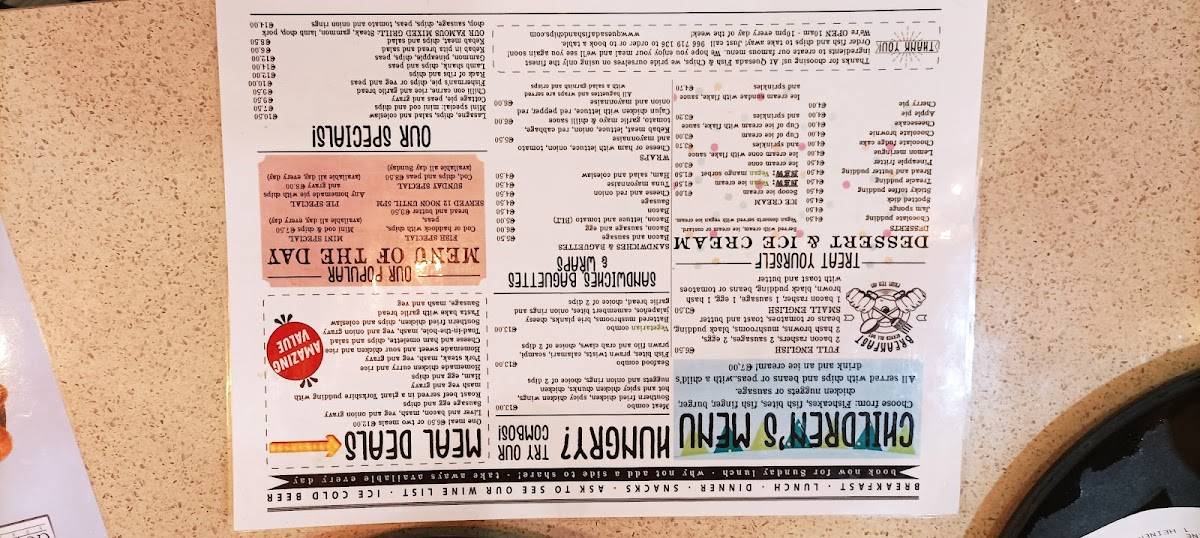 BREAKFAST · LUNCH · DINNER · SNACKS · ASK TO SEE OUR WINE LIST · ICE COLD BEER
book now for Sunday lunch · why not add a side to share! · take aways available every day
CHILDREN'S MENU
Choose from: Fishcakes, fish bites, fish finger, burger,
chicken nuggets or sausage.
All served with chips and beans or peas..with a child's
drink and an ice cream! €7,00
BREAKFAST
SERVED ALL DAY
FULL ENGLISH €6.50
2 bacon rashers, 2 sausages, 2 eggs,
2 hash browns, mushrooms, black pudding
beans or tomatoes, toast and butter
SMALL ENGLISH €3.50
1 bacon rasher, 1 sausage, 1 egg, 1 hash
brown, black pudding, beans or tomatoes
with toast and butter
TREAT YOURSELF
DESSERT & ICE CREAM
DESSERTS
Served with cream, ice cream or custard.
Vegan desserts served with vegan ice cream
Chocolate pudding €4.50
Jam sponge
Spotted dick
Sticky toffee pudding
Treacle pudding
Bread and butter pudding
Pineapple fritter
Lemon meringue
Chocolate fudge cake
Chocolate brownie
Cheesecake
Apple pie
Cherry pie
ICE CREAM
Scoop ice cream
NEW: Vegan ice cream
NEW: Vegan mango sorbet
Ice cream cone
Ice cream cone with flake, sauce
and sprinkles
Cup of ice cream
Cup of ice cream with flake, sauce
and sprinkles
Ice cream sundae with flake, sauce
and sprinkles €4.70
HUNGRY?
TRY OUR
COMBOS!
Meat combo €13.00
Southern fried chicken, spicy chicken wings,
hot and spicy chicken chunks, chicken
nuggets and onion rings, choice of 2 dips
Seafood combo €13.00
Fish bites, prawn twists, calamari, scampi,
prawn filo and crab claws, choice of 2 dips
Vegetarian combo €13.00
Battered mushrooms, brie planks, cheesy
jalapeños, camembert bites, onion rings and
garlic bread, choice of 2 dips
SANDWICHES BAGUETTES
& WRAPS
SANDWICHES & BAGUETTES
Bacon and sausage €6.50
Bacon, sausage and egg
Bacon, lettuce and tomato (BLT)
Bacon
Sausage
Cheese and red onion €4.50
Tuna mayonnaise €4.50
Ham, salad and coleslaw €4.50
WRAPS
Cheese or ham with lettuce, onion, tomato
and mayonnaise €5.50
Kebab meat, lettuce, onion, red cabbage,
tomato, garlic mayo & chilli sauce
Cajun chicken with lettuce, red pepper, red
onion and mayonnaise €6.00
All baguettes and wraps are served
with a salad garnish and crisps
MEAL DEALS
One meal €6.50 or two meals €12.00
Liver and bacon, mash, veg and onion gravy
Sausage egg and chips
Roast beef served in a giant Yorkshire pudding with
mash veg and gravy
Ham, egg and chips
Homemade chicken curry and rice
Pork steak, mash, veg and gravy
Homemade sweet and sour chicken and rice
Cheese and ham omelette, chips and salad
Toad-in-the-hole, mash, veg and onion gravy
Southern fried chicken, chips and coleslaw
Pasta bake with garlic bread
Sausage, mash and veg
AMAZING
VALUE
OUR POPULAR
MENU OF THE DAY
FISH SPECIAL
Cod or haddock with chips,
peas,
bread and butter €9.50
SERVED 12 NOON UNTIL 5PM
MINI SPECIAL
Mini cod & chips €7.50
(available all day, every day)
SUNDAY SPECIAL
Cod, chips and peas €8.50
(available all day Sunday)
PIE SPECIAL
Any homemade pie with chips
and gravy €8.00
(available all day, every day)
OUR SPECIALS!
Lasagne, chips, salad and coleslaw €10.50
Mini special: mini cod and chips €7.50
Cottage pie, peas and gravy €9.50
Chilli con carne, rice and garlic bread €9.50
Fisherman's pie, chips or veg and peas €10.00
Rack of ribs and chips €12.00
Lamb shank, chips and peas €14.00
Gammon, pineapple, chips, peas €12.00
Kebab in pita bread and salad €6.00
Kebab meat, chips and salad €8.50
OUR FAMOUS MIXED GRILL: Steak, gammon, lamb chop, pork
chop, sausage, chips, peas, tomato and onion rings €14.00
THANK YOU!
Thanks for choosing us! At Quesada Fish & Chips, we pride ourselves on using only the finest
ingredients to create our famous menu. We hope you enjoy your meal and will see you again soon!
Order fish and chips to take away! Just call 966 719 136 to order or to book a table.
We're OPEN 10am - 10pm every day of the week! www.quesadafishandchips.com